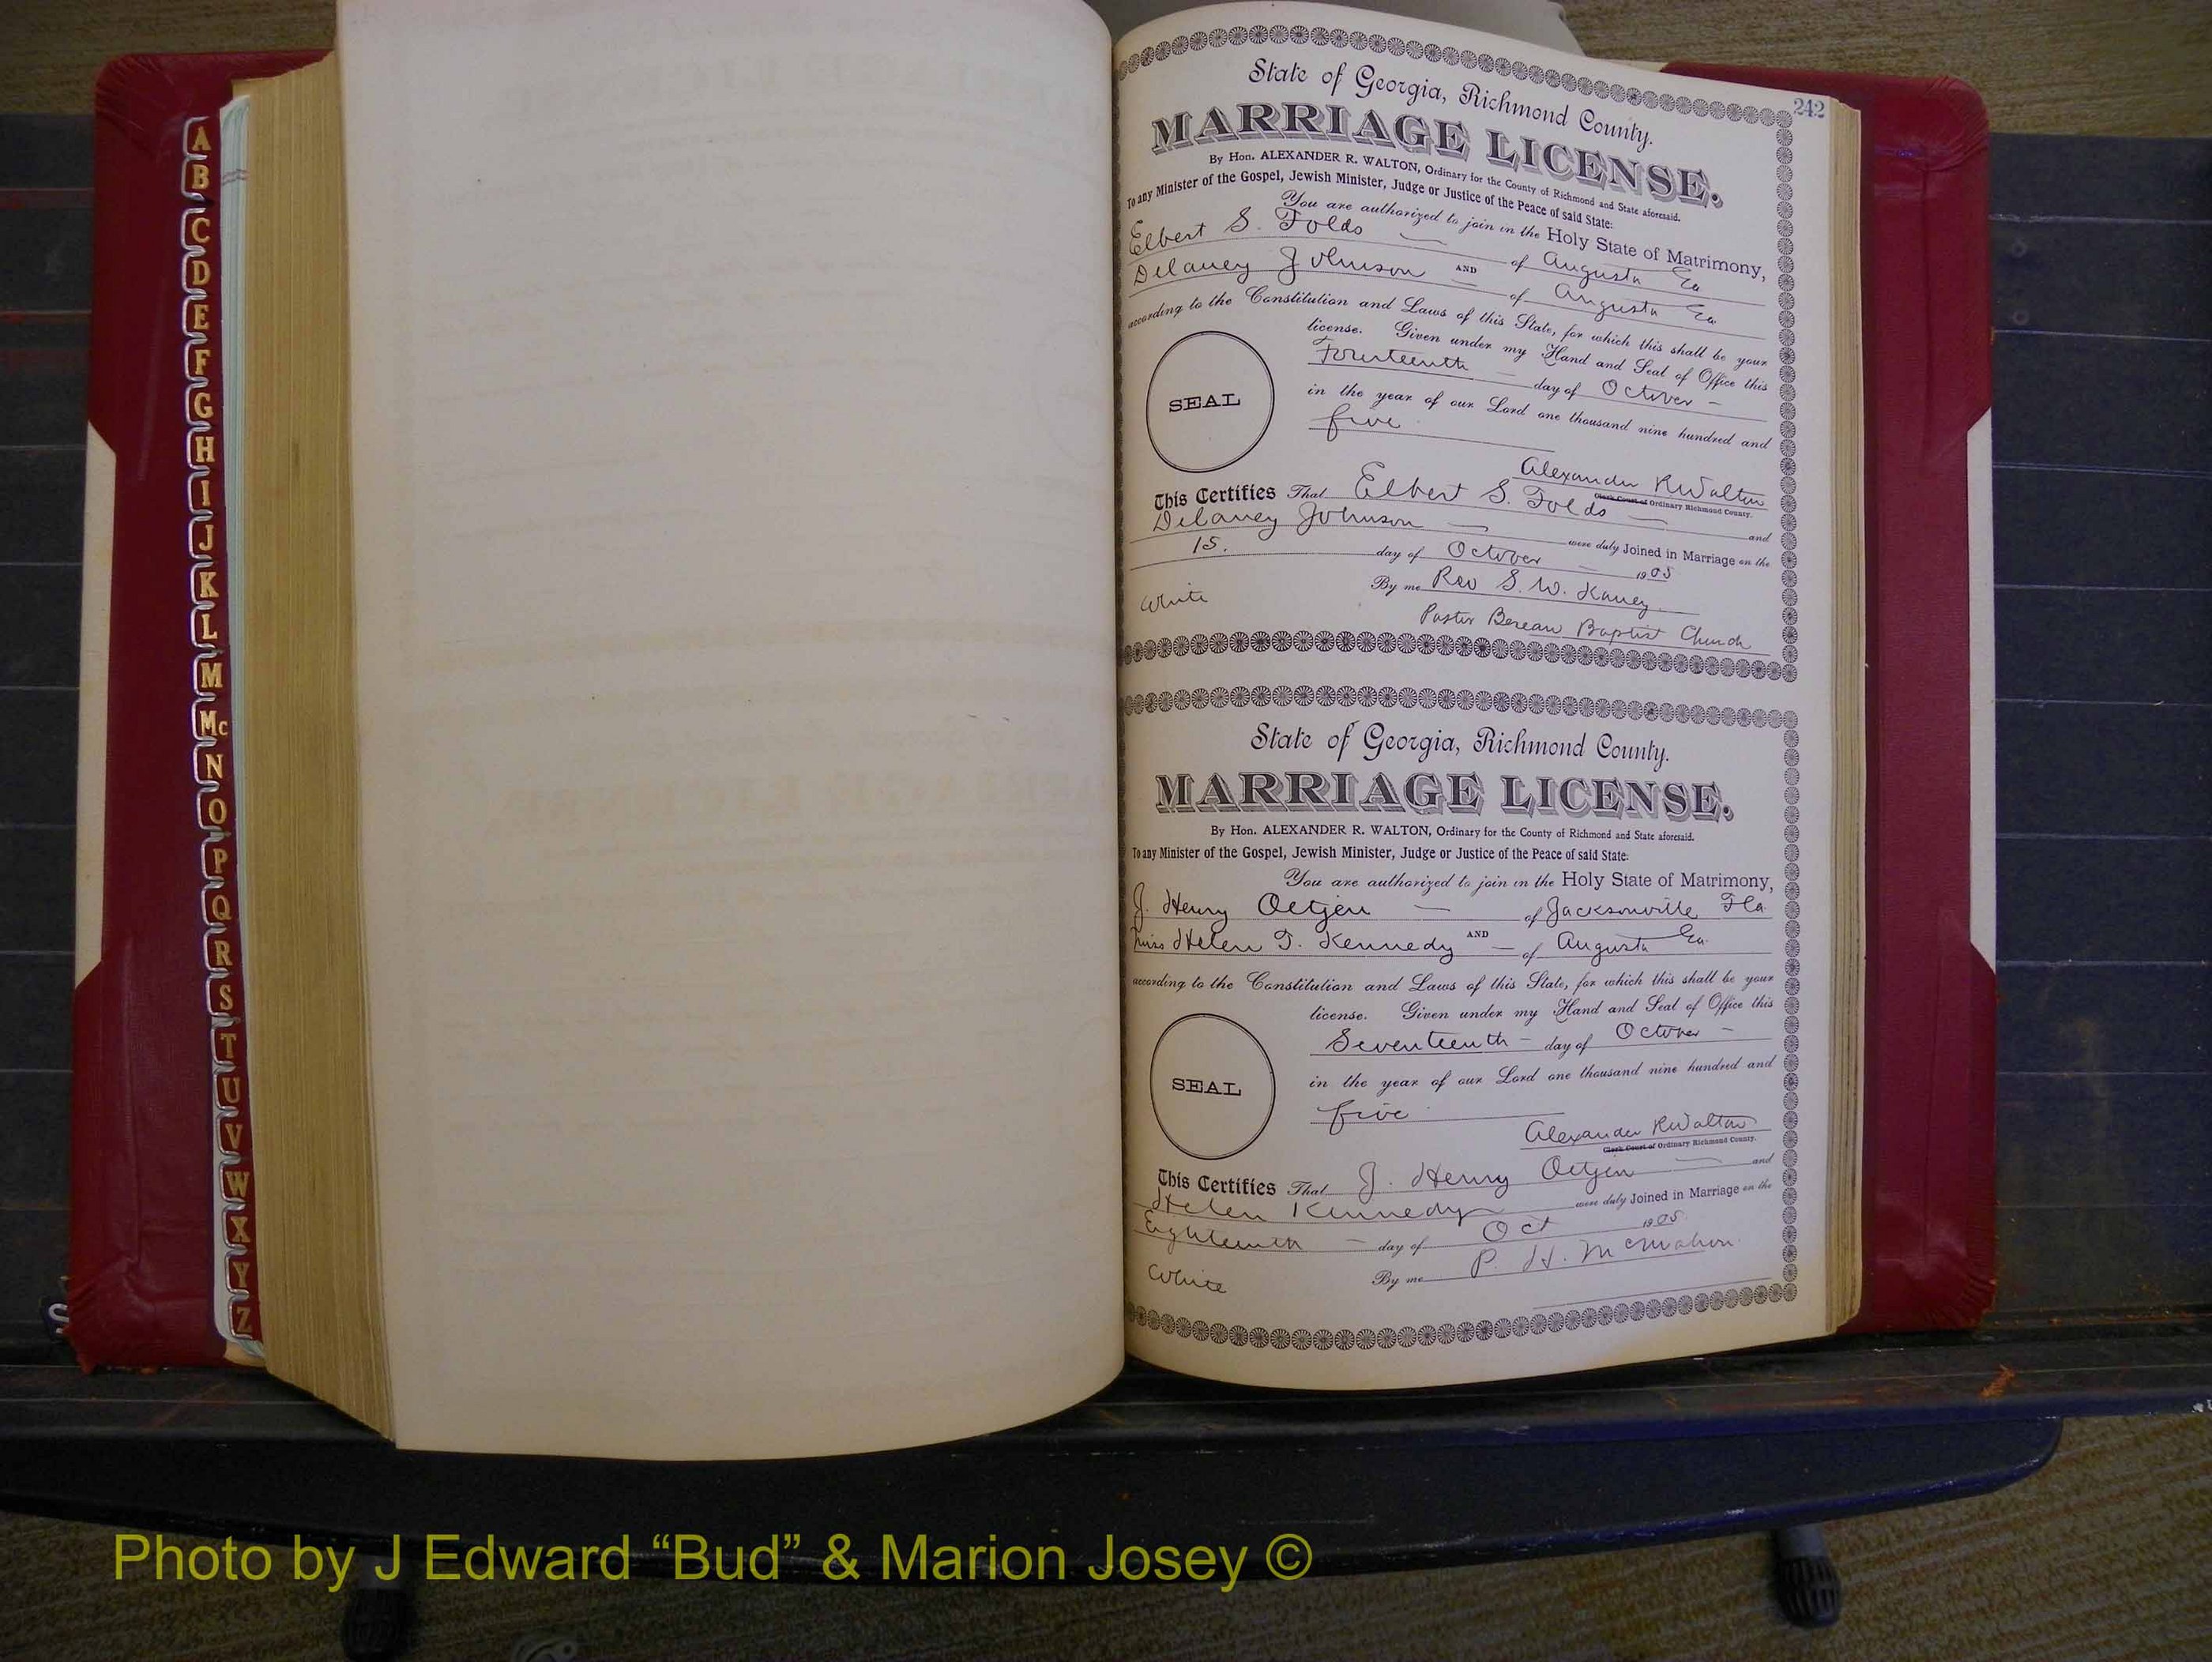 A
B
C
D
E
F
G
H
I
J
K
L
M
Mc
N
O
P
Q
R
S
T
U
V
W
X
Y
Z
242
State of Georgia, Richmond County.
MARRIAGE LICENSE.
By Hon. ALEXANDER R. WALTON, Ordinary for the County of Richmond and State aforesaid.
To any Minister of the Gospel, Jewish Minister, Judge or Justice of the Peace of said State:
You are authorized to join in the Holy State of Matrimony,
Elbert S. Folds — of Augusta Ga
AND
Delaney Johnson — of Augusta Ga
according to the Constitution and Laws of this State, for which this shall be your
license. Given under my Hand and Seal of Office this
Fourteenth — day of October —
in the year of our Lord one thousand nine hundred and
five
SEAL
Alexander R Walton
Clerk Court of Ordinary Richmond County.
This Certifies That Elbert S. Folds — and
Delaney Johnson — were duly Joined in Marriage on the
15. day of October — 1905
By me Rev S. W.
White
Pastor Berean Baptist Church
State of Georgia, Richmond County.
MARRIAGE LICENSE.
By Hon. ALEXANDER R. WALTON, Ordinary for the County of Richmond and State aforesaid.
To any Minister of the Gospel, Jewish Minister, Judge or Justice of the Peace of said State:
You are authorized to join in the Holy State of Matrimony,
J. Henry Oetjen — of Jacksonville Fla.
AND
Miss Helen T. Kennedy — of Augusta Ga.
according to the Constitution and Laws of this State, for which this shall be your
license. Given under my Hand and Seal of Office this
Seventeenth — day of October —
in the year of our Lord one thousand nine hundred and
five
SEAL
Alexander R Walton
Clerk Court of Ordinary Richmond County.
This Certifies That J. Henry Oetjen — and
Helen Kennedy were duly Joined in Marriage on the
Eighteenth — day of Oct 1905.
By me P. H. McMahon.
White
Photo by J Edward “Bud” & Marion Josey ©